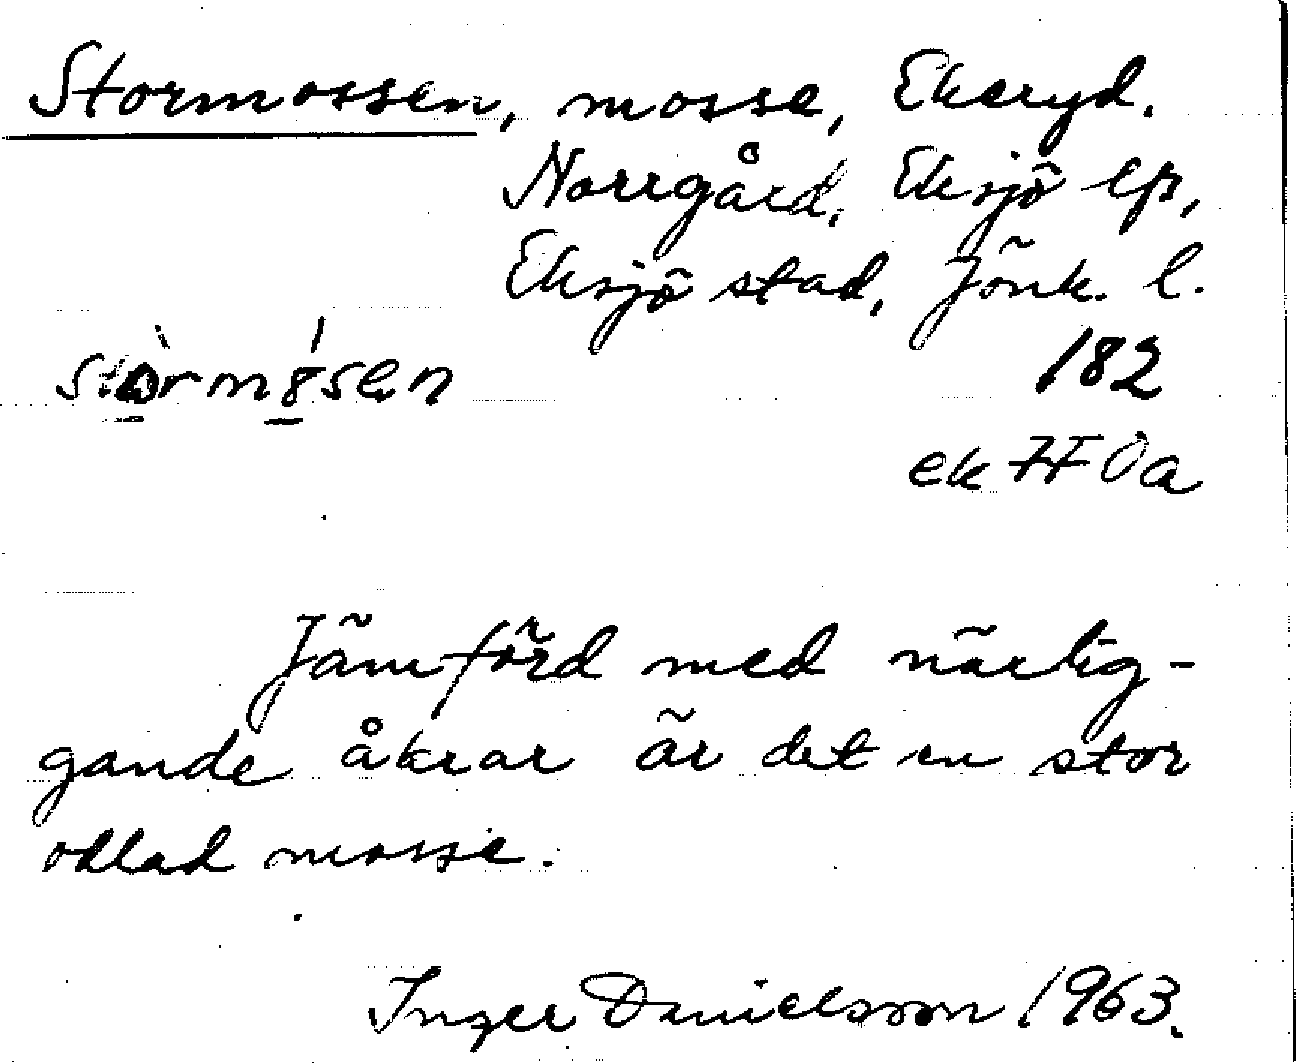 Stormossen, mosse, Ekeryd.
Norrgård, Eksjö lfs,
Eksjö stad, Jönk. l.
182
ek 7F 0a
Jämförd med närlig-
gande åkrar är det en stor
odlad mosse.
Inger Danielsson 1963.